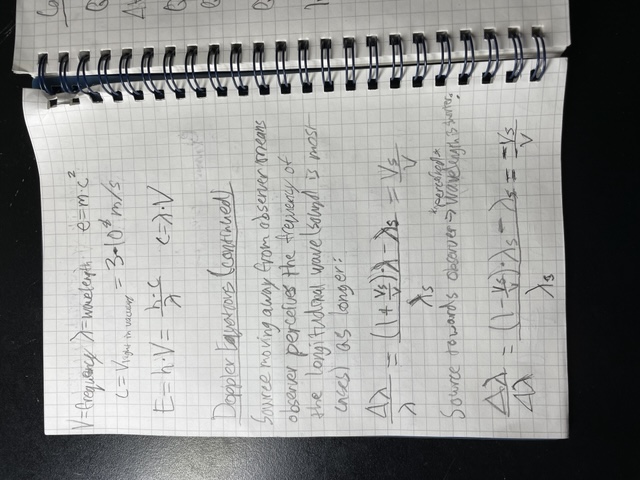 V=frequency λ=wavelength e=m·c²
c=V light in vacuum = 3·10⁸ m/s
E=h·V= h·c/λ c=λ·V
Doppler Equations (continued)
Source moving away from observer means
observer perceives the frequency of
the longitudinal wave (sound is most
cases) as longer:
Δλ/λ = ((1+Vs/V)·λ-λs)/λs = Vs/V
*perceived*
Source towards observer → wavelength is shorter.
Δλ/Δλ = ((1-Vs/V)·λs-λs)/λs = -Vs/V